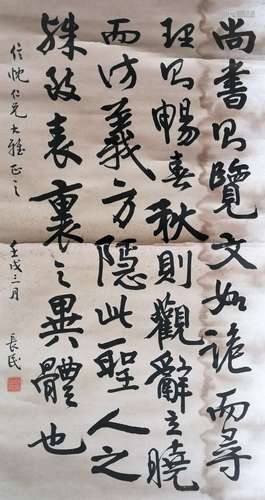 尚書則覽文如詭而尋
理即暢春秋則觀辭立曉
而访義方隱此聖人之
殊致表裏之異體也
仁兄大雅正之
壬戌三月 長民